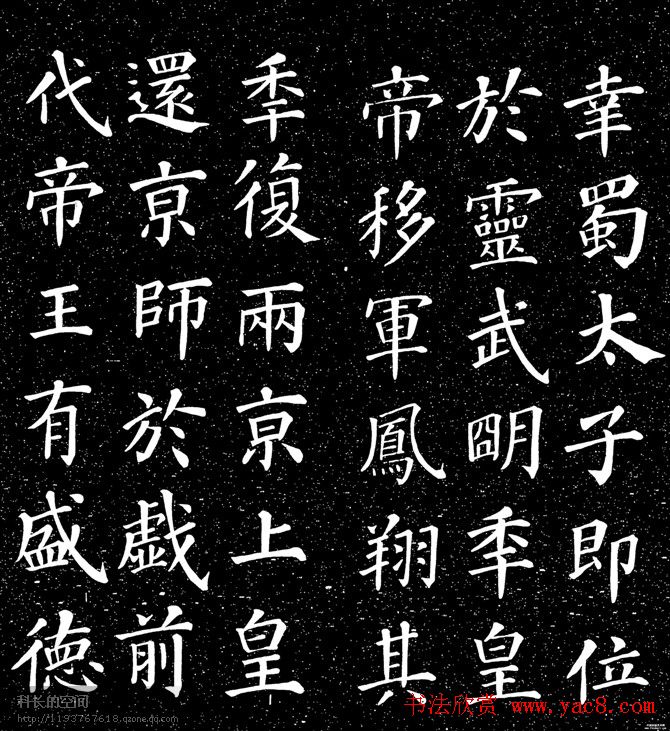 幸蜀太子即位
於靈武明秊皇
帝移軍鳳翔其
秊復兩京上皇
還京師於戲前
代帝王有盛德
科长的空间
http://1193767618.qzone.qq.com
书法欣赏 www.yac8.com